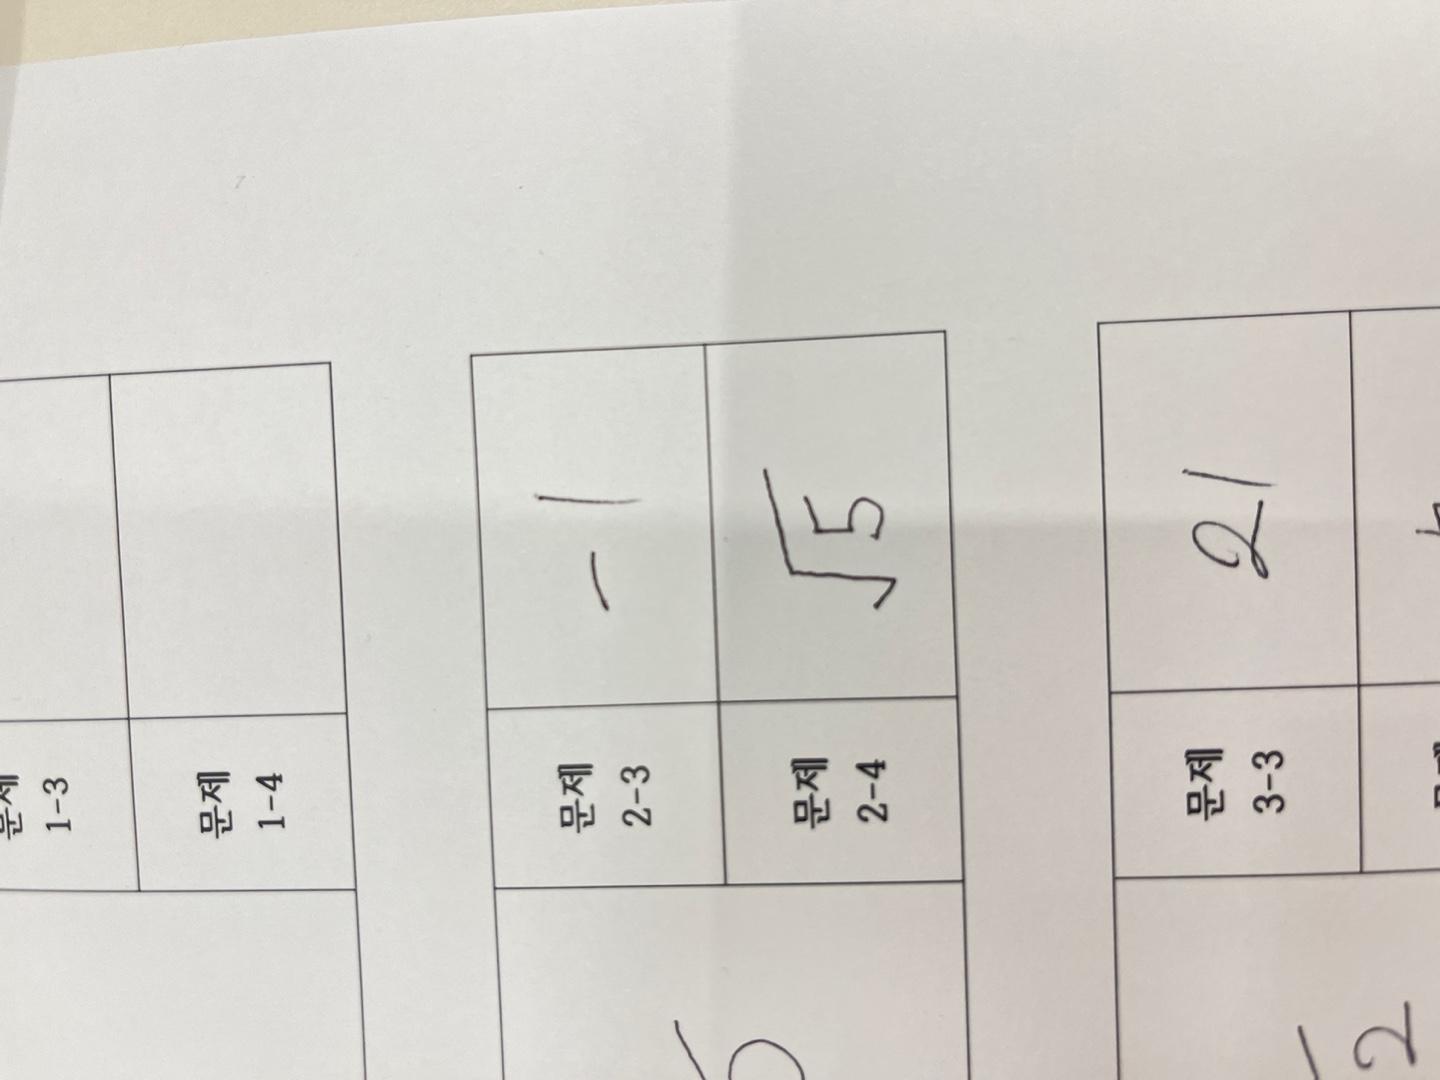 문제
1-3
문제
1-4
문제
2-3
-1
문제
2-4
√5
문제
3-3
21
2